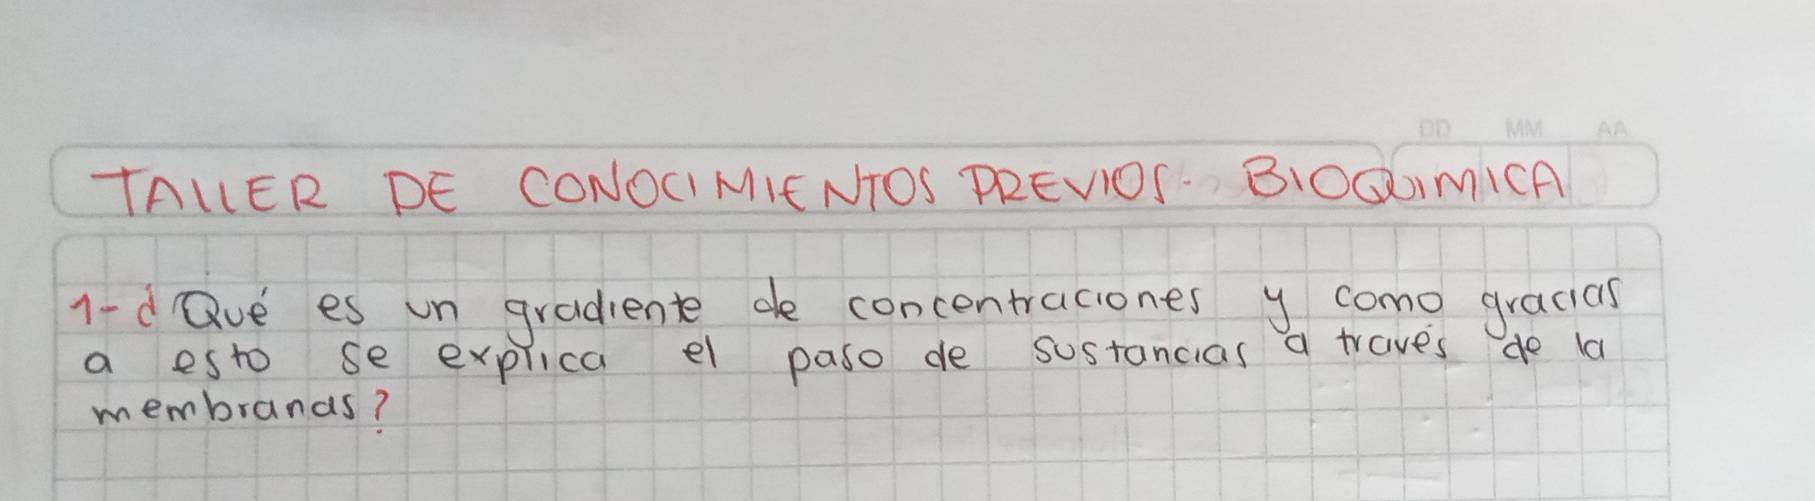 DD MM AA
TALLER DE CONOCIMIENTOS PREVIOS. BIOQUIMICA
1- ¿Qué es un gradiente de concentraciones y como gracias
a esto se explica el paso de sustancias a través de la
membranas?